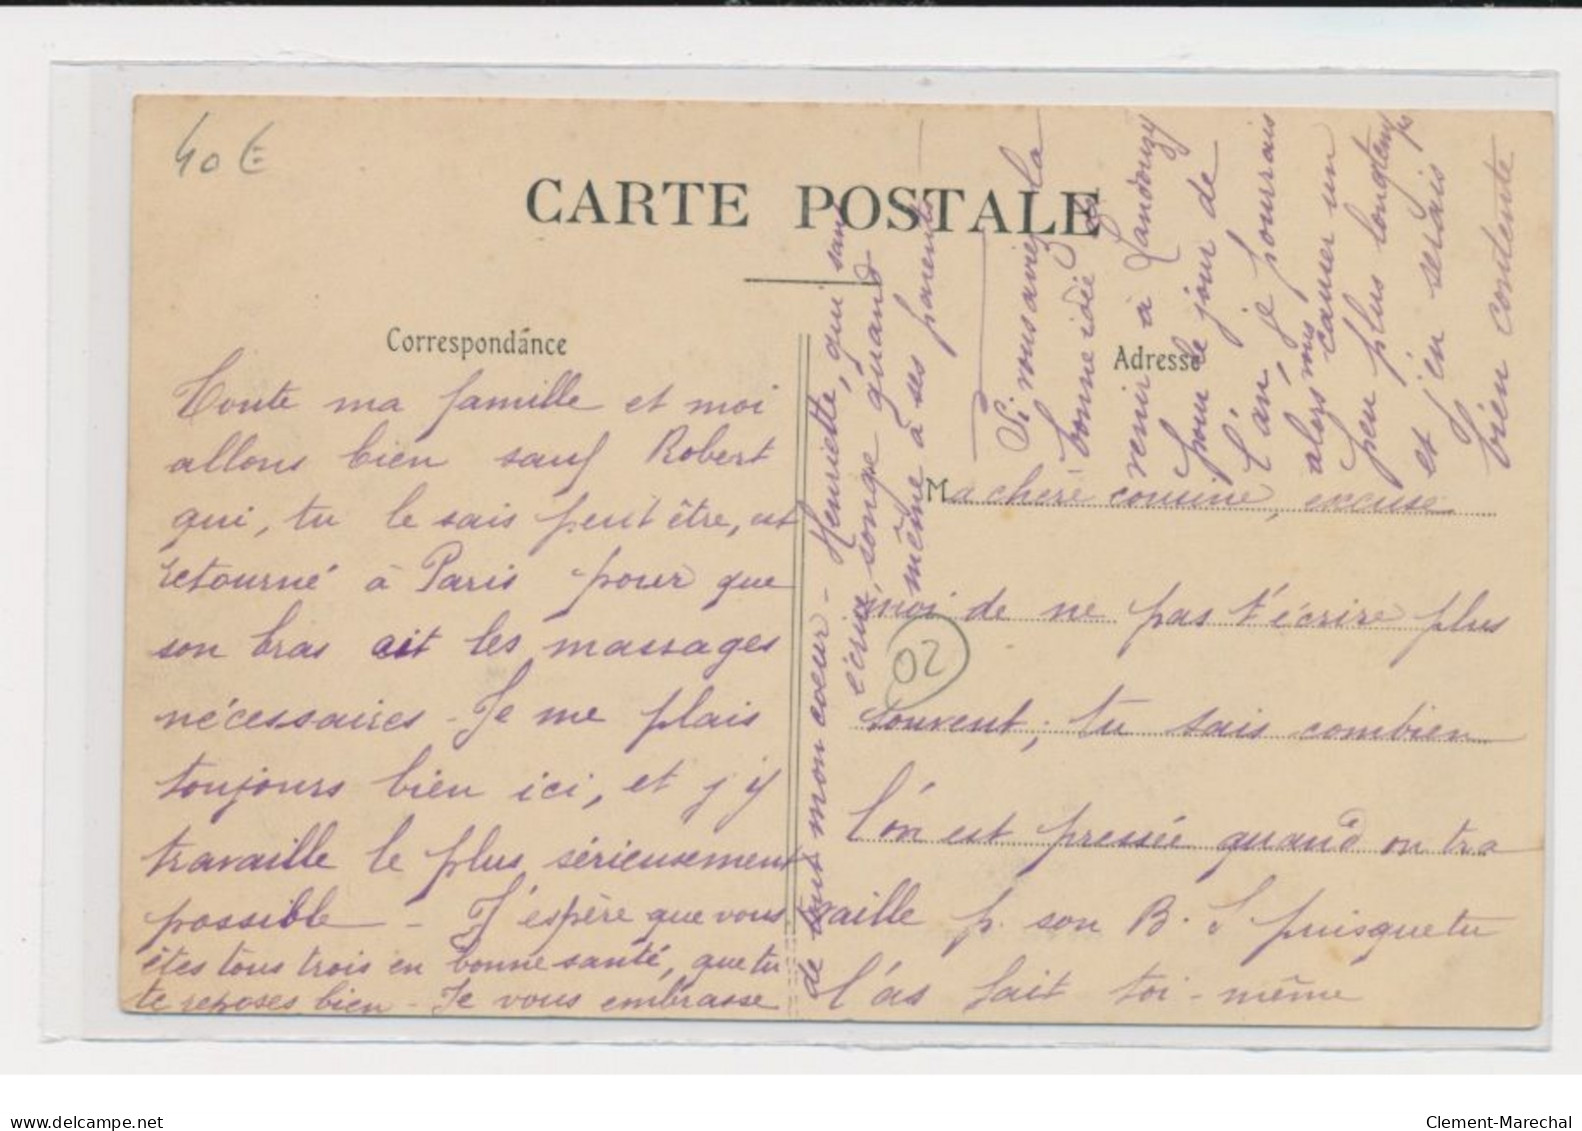 40 €
CARTE POSTALE
Correspondance
Adresse
Ma chère cousine, excuse
moi de ne pas t'écrire plus
souvent; tu sais combien
l'on est pressée quand on tra
vaille p. son B. S puisque tu
l'as fait toi-même
02
Toute ma famille et moi
allons bien sauf Robert
qui, tu le sais peut être, est
retourné à Paris pour que
son bras ait les massages
nécessaires - Je me plais
toujours bien ici, et j'y
travaille le plus sérieusement
possible - J'espère que vous
êtes tous trois en bonne santé, que tu
te reposes bien - Je vous embrasse
de tout mon cœur - Henriette, qui sans
écrire, songe quand
même à ses parents
Si vous aviez la
bonne idée de
venir à Landouzy
pour le jour de
l'an, je pourrais
alors vous causer un
peu plus longtemps
et j'en serais
bien contente
www.delcampe.net
Clement-Marechal